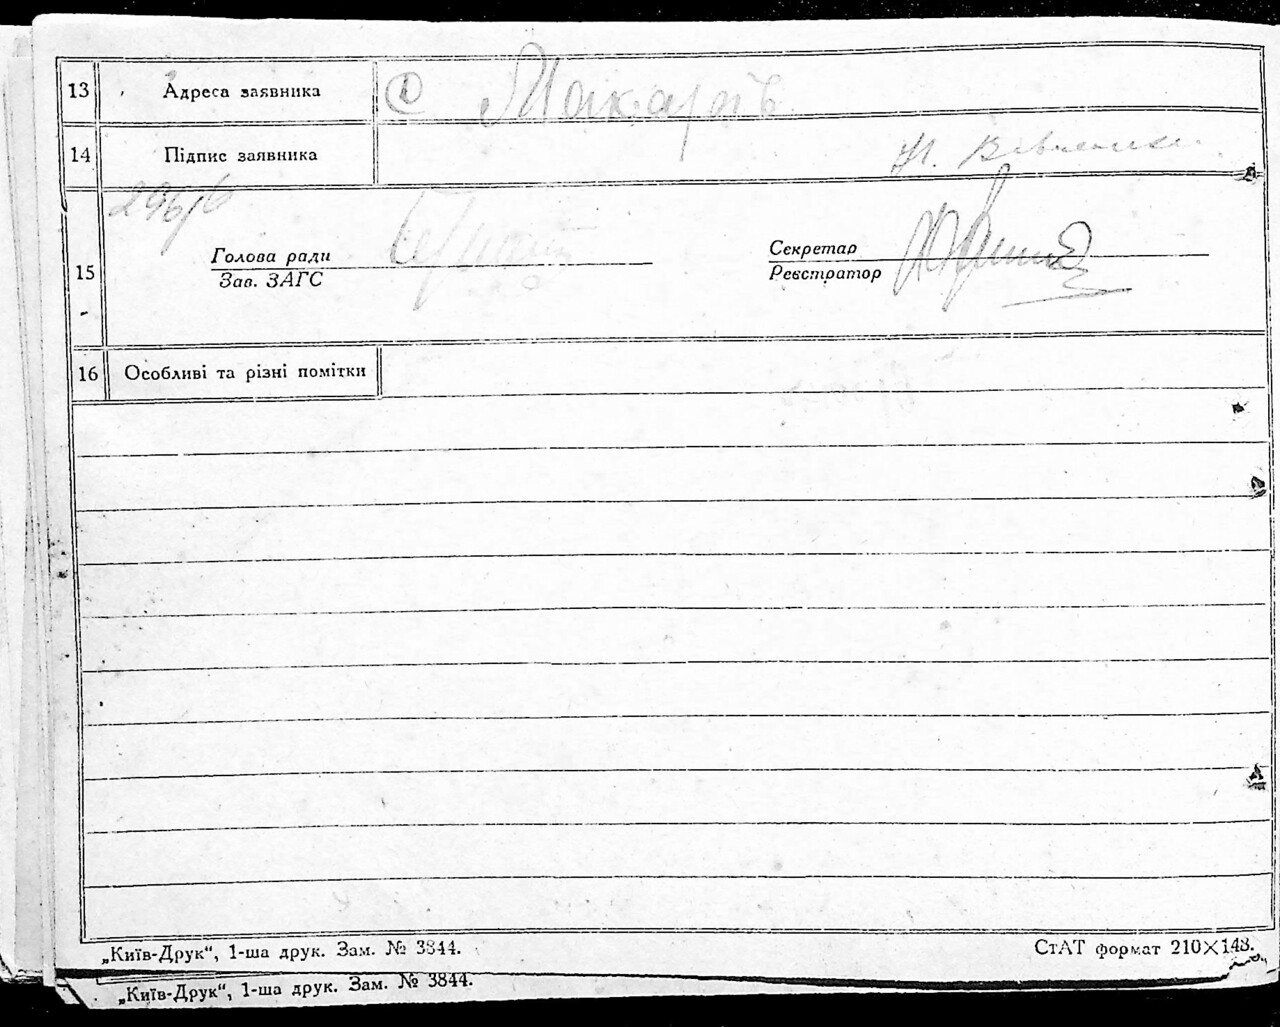 13 Адреса заявника с Макарів
14 Підпис заявника
296/6
Голова ради Секретар
15
Зав. ЗАГС Реєстратор
16 Особливі та різні помітки
„Київ-Друк“, 1-ша друк. Зам. № 3844. СтАТ формат 210×148.
„Київ-Друк“, 1-ша друк. Зам. № 3844.